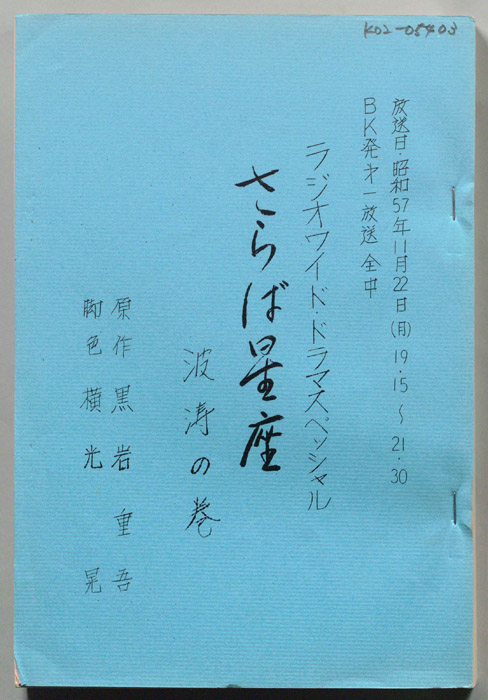 K02-05403
放送日・昭和57年11月22日(月)19・15～21・30
BK発才一放送 全中
ラジオワイド・ドラマスペッシャル
さらば星座
波涛の巻
原作 黒岩重吾
脚色 横光晃